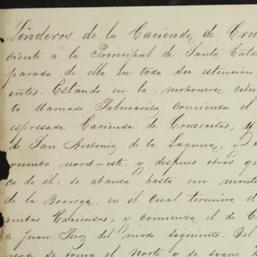 Linderos de la Hacienda de Cru
ciente á la Principal de Santa Cata
parada de ella en toda su estension
entes. Estando en la mohonera
to llamado Palmarito, comienza el
espresada Hacienda de Cruecitas, y
de San Antonio de la Laguna, y
rumbo nord-este, y despues otro
co de él, se abanza hasta un mont
de la Borrega, en el cual termina el
ambas Haciendas, y comienza el de
de Juan Perez del modo siguiente. Del
se toma el Norte y se sigue